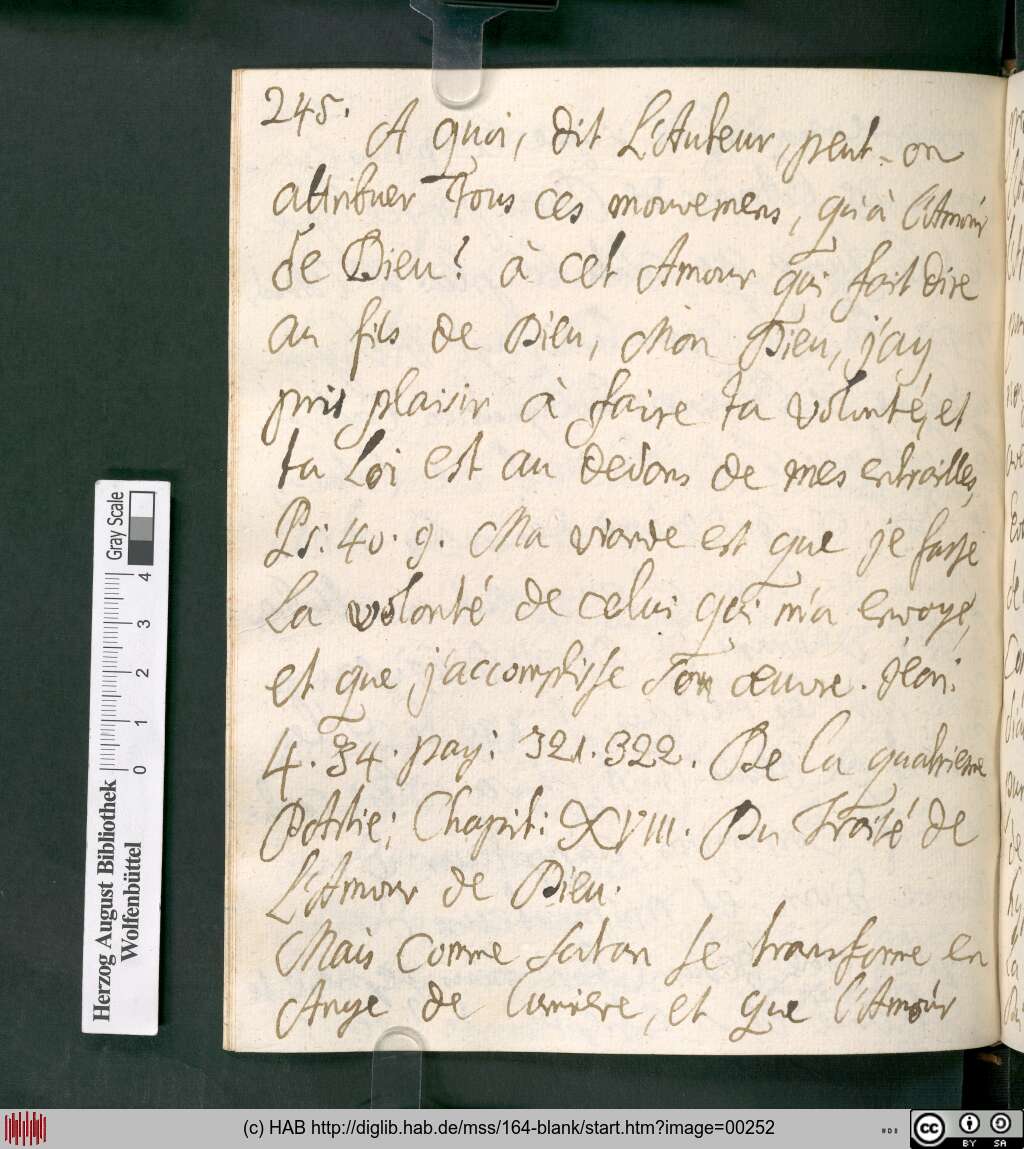 245.
A quoi, dit L'Auteur, peut-on
attribuer Tous ces mouvemens, qu'à l'Amour
de Dieu? à cet Amour qui fait dire
au fils de Dieu, Mon Dieu, j'ay
pris plaisir à faire ta volonté, et
ta Loi est au dedans de mes entrailles,
Ps: 40. 9. Ma viande est que je fasse
La volonté de celui qui m'a envoyé,
et que j'accomplisse Son œuvre. Jean:
4. 34. pag: 321. 322. De la quatrieme
Partie; Chapit: XVIII. Du Traité de
L'Amour de Dieu.
Mais Comme Satan se transforme en
Ange de lumiere, et que l'Amour
Gray Scale
0 1 2 3 4
Herzog August Bibliothek
Wolfenbüttel
(c) HAB http://diglib.hab.de/mss/164-blank/start.htm?image=00252
cc BY SA